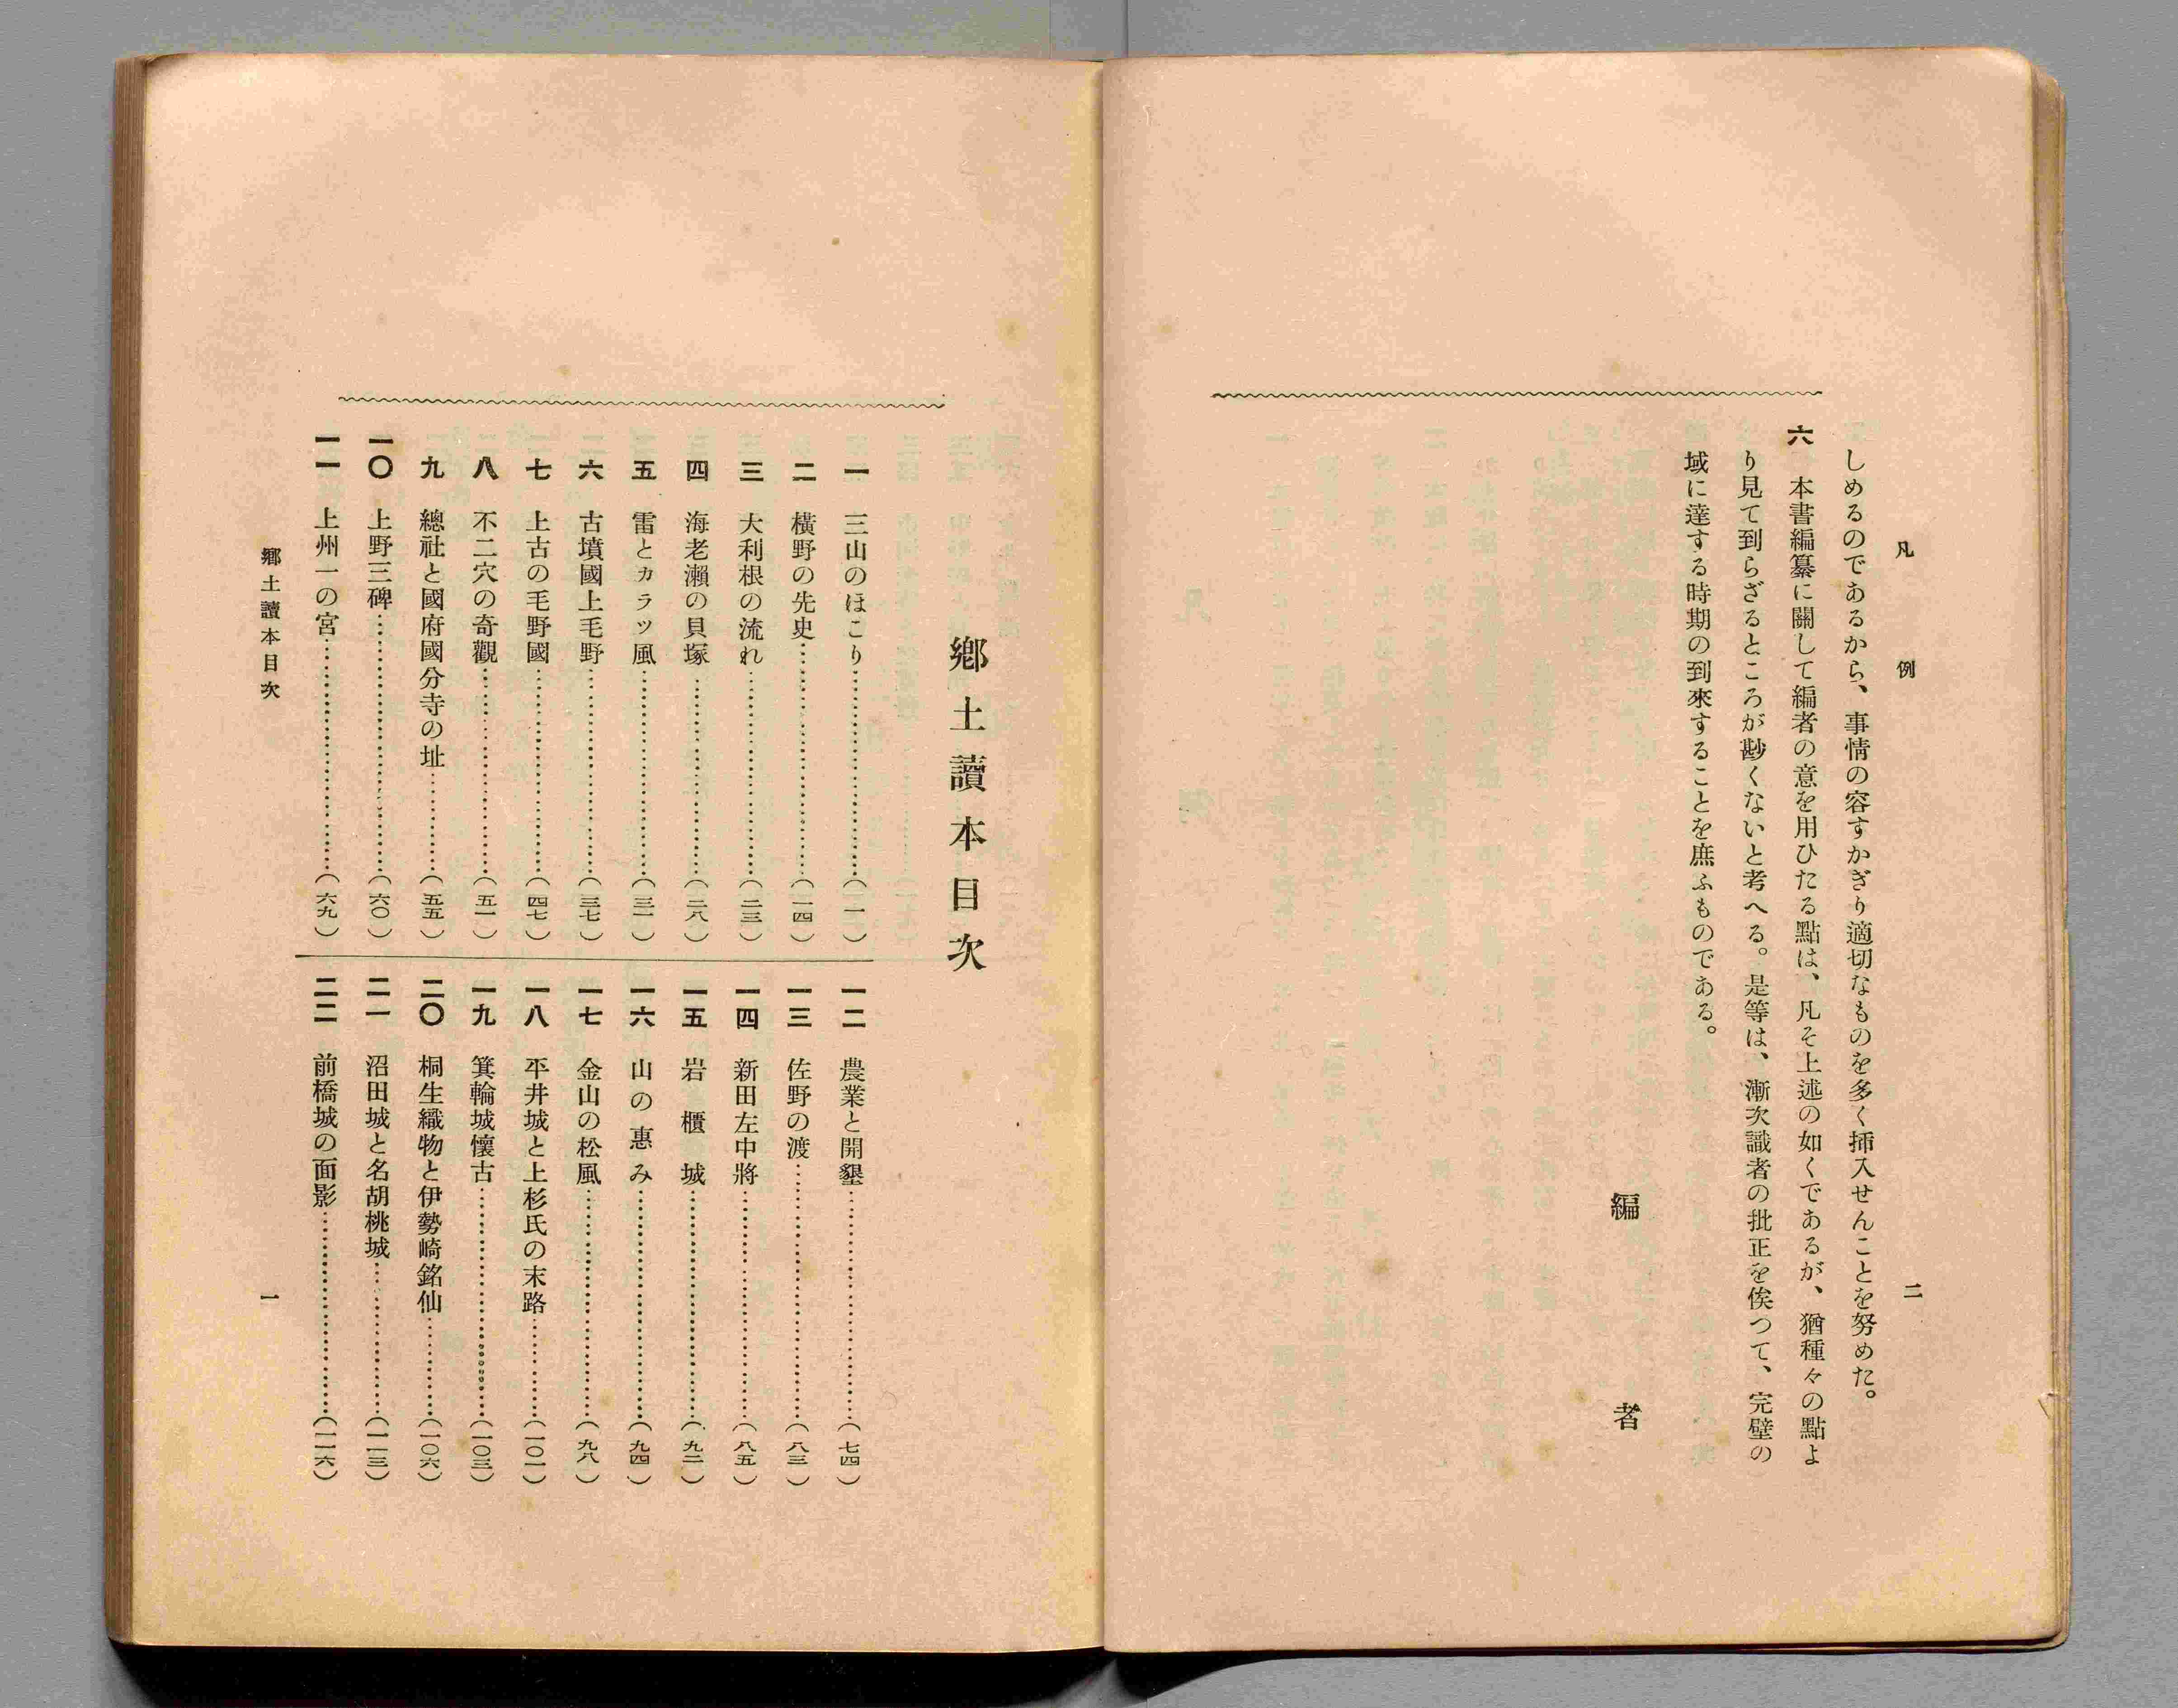 凡例
二
しめるのであるから、事情の容すかぎり適切なものを多く揷入せんことを努めた。
六　本書編纂に關して編者の意を用ひたる點は、凡そ上述の如くであるが、猶種々の點よ
り見て到らざるところが尠くないと考へる。是等は、漸次識者の批正を俟つて、完璧の
域に達する時期の到來することを庶ふものである。
編者
鄕土讀本目次
一　三山のほこり……（一）
二　橫野の先史……（一四）
三　大利根の流れ……（二三）
四　海老瀨の貝塚……（二八）
五　雷とカラッ風……（三一）
六　古墳國上毛野……（三七）
七　上古の毛野國……（四七）
八　不二穴の奇觀……（五一）
九　總社と國府國分寺の址……（五五）
一〇　上野三碑……（六〇）
一一　上州一の宮……（六九）
一二　農業と開墾……（七四）
一三　佐野の渡……（八三）
一四　新田左中將……（八五）
一五　岩櫃城……（九二）
一六　山の惠み……（九四）
一七　金山の松風……（九八）
一八　平井城と上杉氏の末路……（一〇一）
一九　箕輪城懷古……（一〇三）
二〇　桐生織物と伊勢崎銘仙……（一〇六）
二一　沼田城と名胡桃城……（一一三）
二二　前橋城の面影……（一一六）
鄕土讀本目次
一